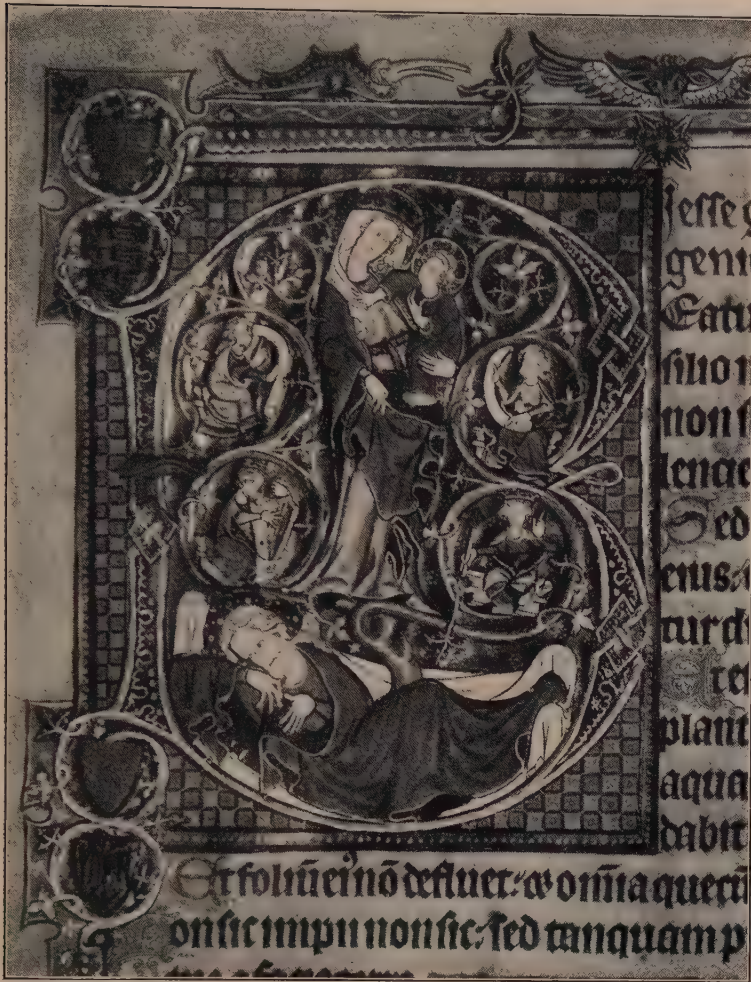 Jesse
geni
Eatu
silio
non
lencie
Sed
eius
tur
plant
aqua
dabit
Et foliū ei nō defluet: omīa quecū
on sic impii non sic: sed tanquam p